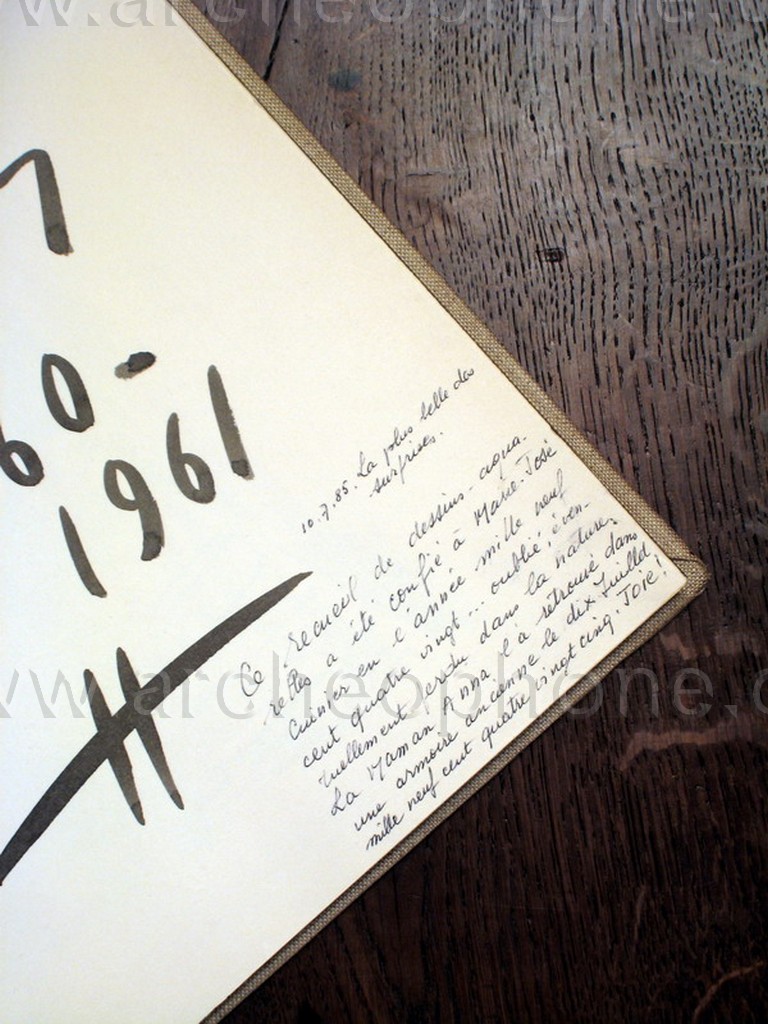 www.archeophone.c
60-
1961
10.7.85. La plus belle des
surprises.
Ce recueil de dessins-aqua-
relles a été confié à Marie-José
en l'année mille neuf
cent quatre vingt... oublié, éven-
tuellement perdu dans la nature.
La Maman Anna l'a retrouvé dans
une armoire ancienne le dix Juillet
mille neuf cent quatre vingt cinq. Joie!
www.archeophone.c